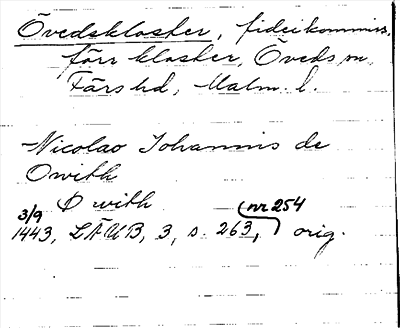 Övedskloster, fideikommiss,
förr kloster, Öveds sn,
Färs hd, Malm. l.
Nicolao Johannis de
Owith
Ø with
3/9 nr 254
1443, LÄUB, 3, s. 263, orig.